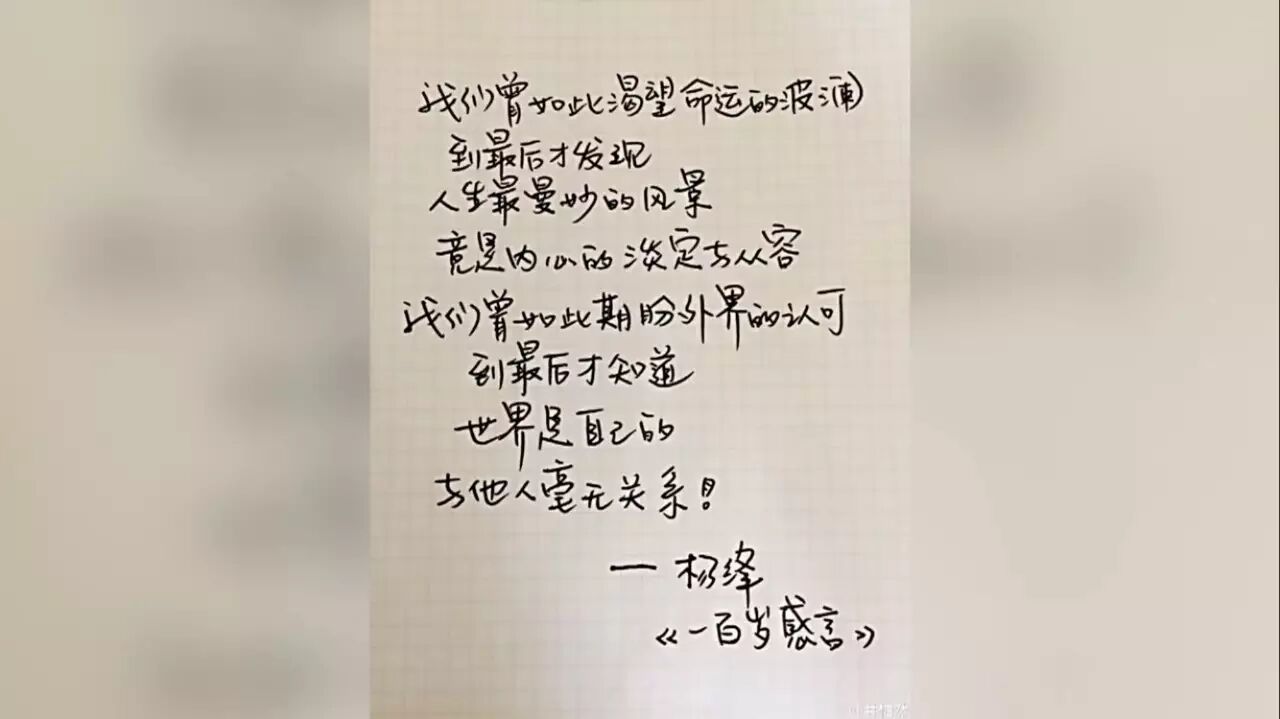 我们曾如此渴望命运的波澜
到最后才发现
人生最曼妙的风景
竟是内心的淡定与从容
我们曾如此期盼外界的认可
到最后才知道
世界是自己的
与他人毫无关系！
— 杨绛
《一百岁感言》